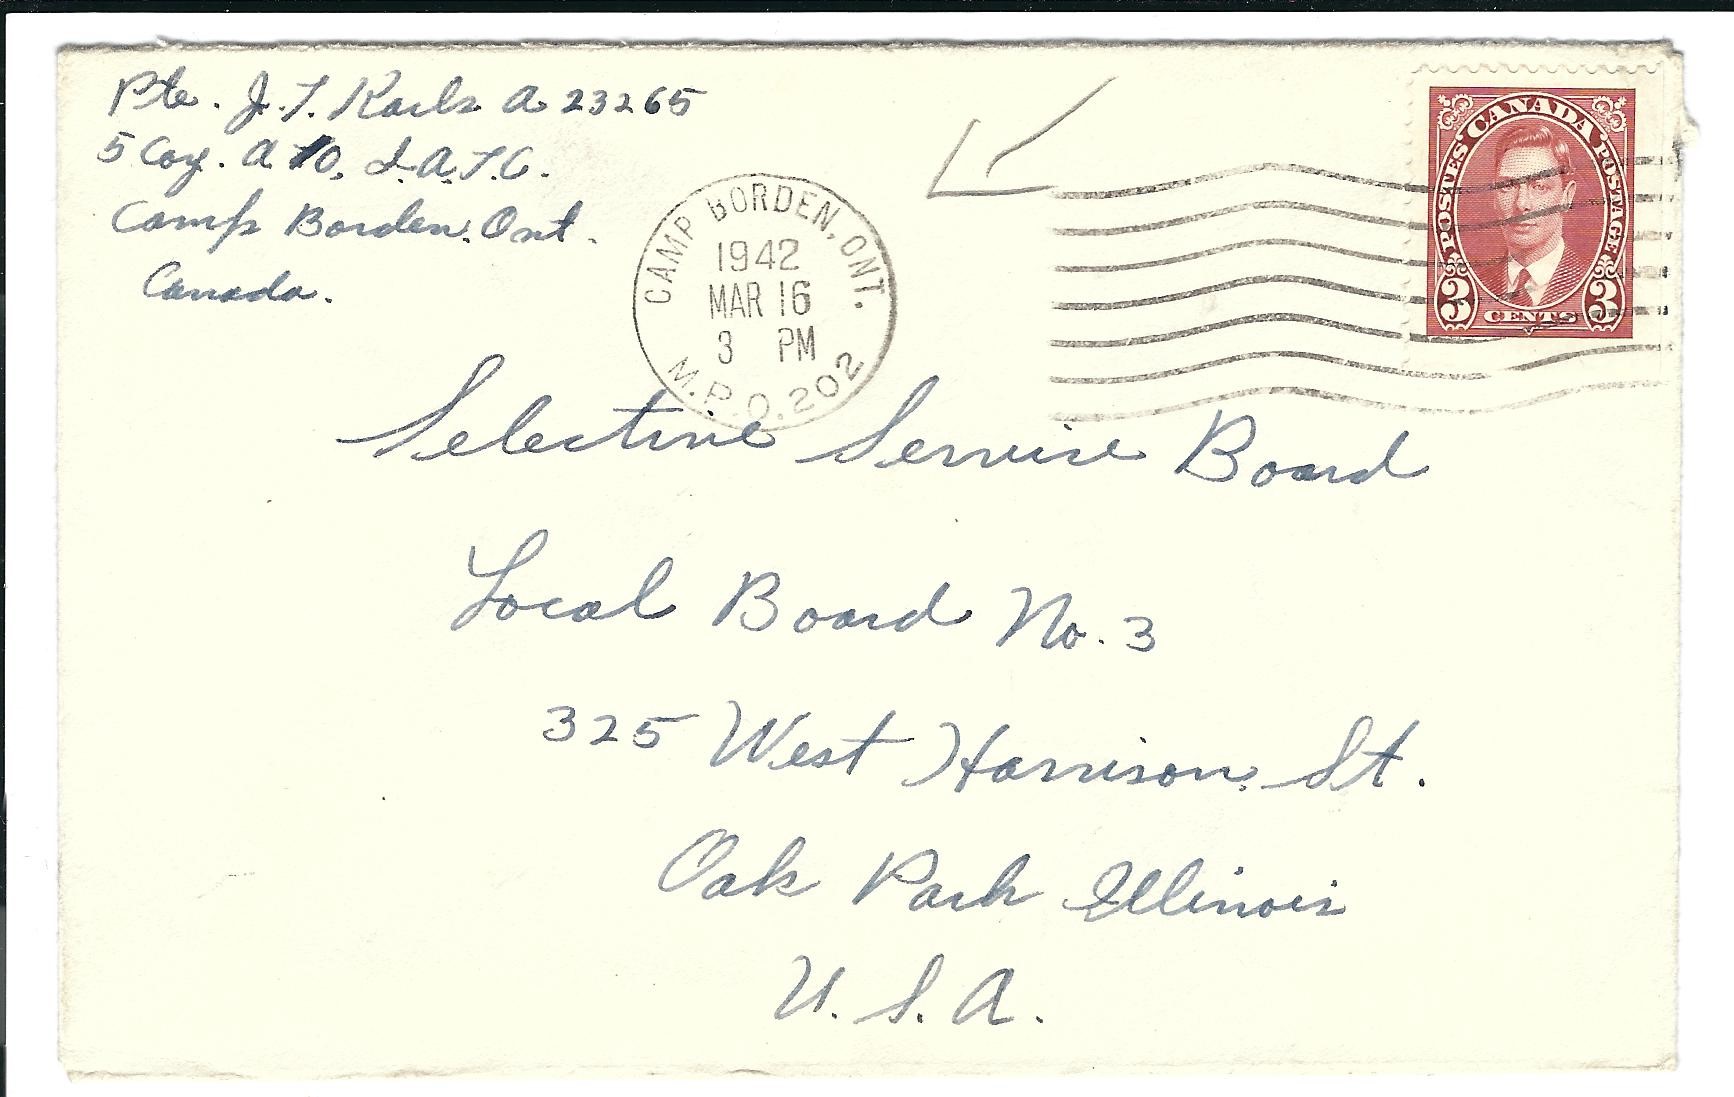 Pte. J. T. Karls A 23265
5 Coy. A 10, I.A.T.C.
Camp Borden, Ont.
Canada.
CAMP BORDEN, ONT.
1942
MAR 16
3 PM
M.P.O. 202
CANADA
POSTES POSTAGE
3 CENTS 3
Selective Service Board
Local Board No. 3
325 West Harrison, St.
Oak Park Illinois
U. S. A.